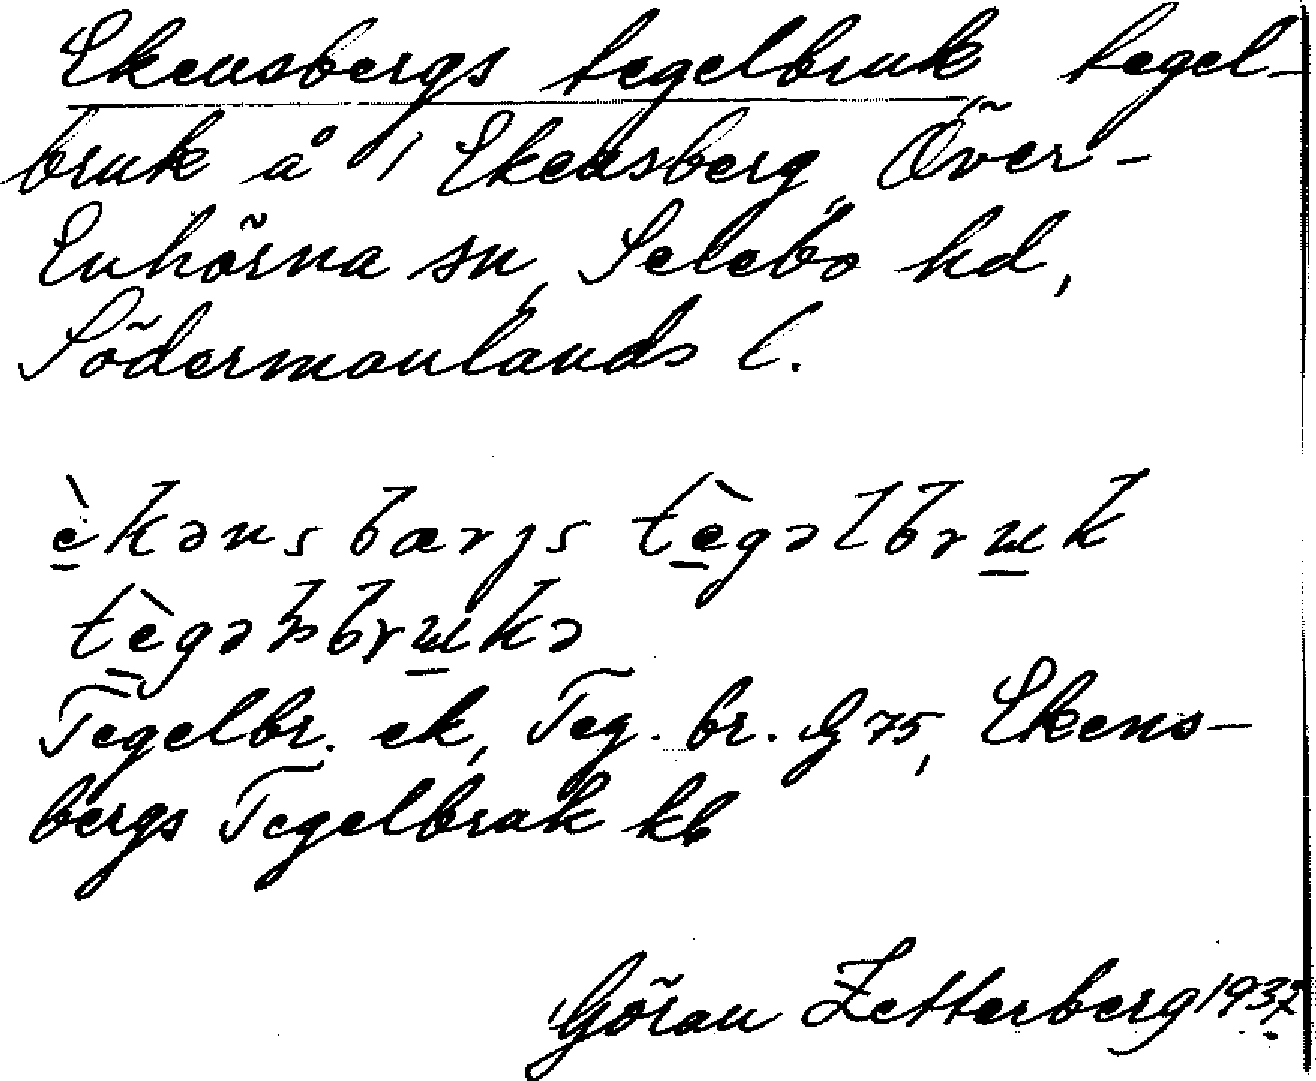 Ekensbergs tegelbruk tegel-
bruk å 1/1 Ekensberg, Över-
Enhörna sn, Selebo hd,
Södermanlands l.
è̱kənsbærjs tè̱gəlbrɯ̱k
tè̱gəlsbrɯ̱kə
Tegelbr. ek, Teg. br. G 75, Ekens-
bergs Tegelbruk kb
Göran Zetterberg 1932